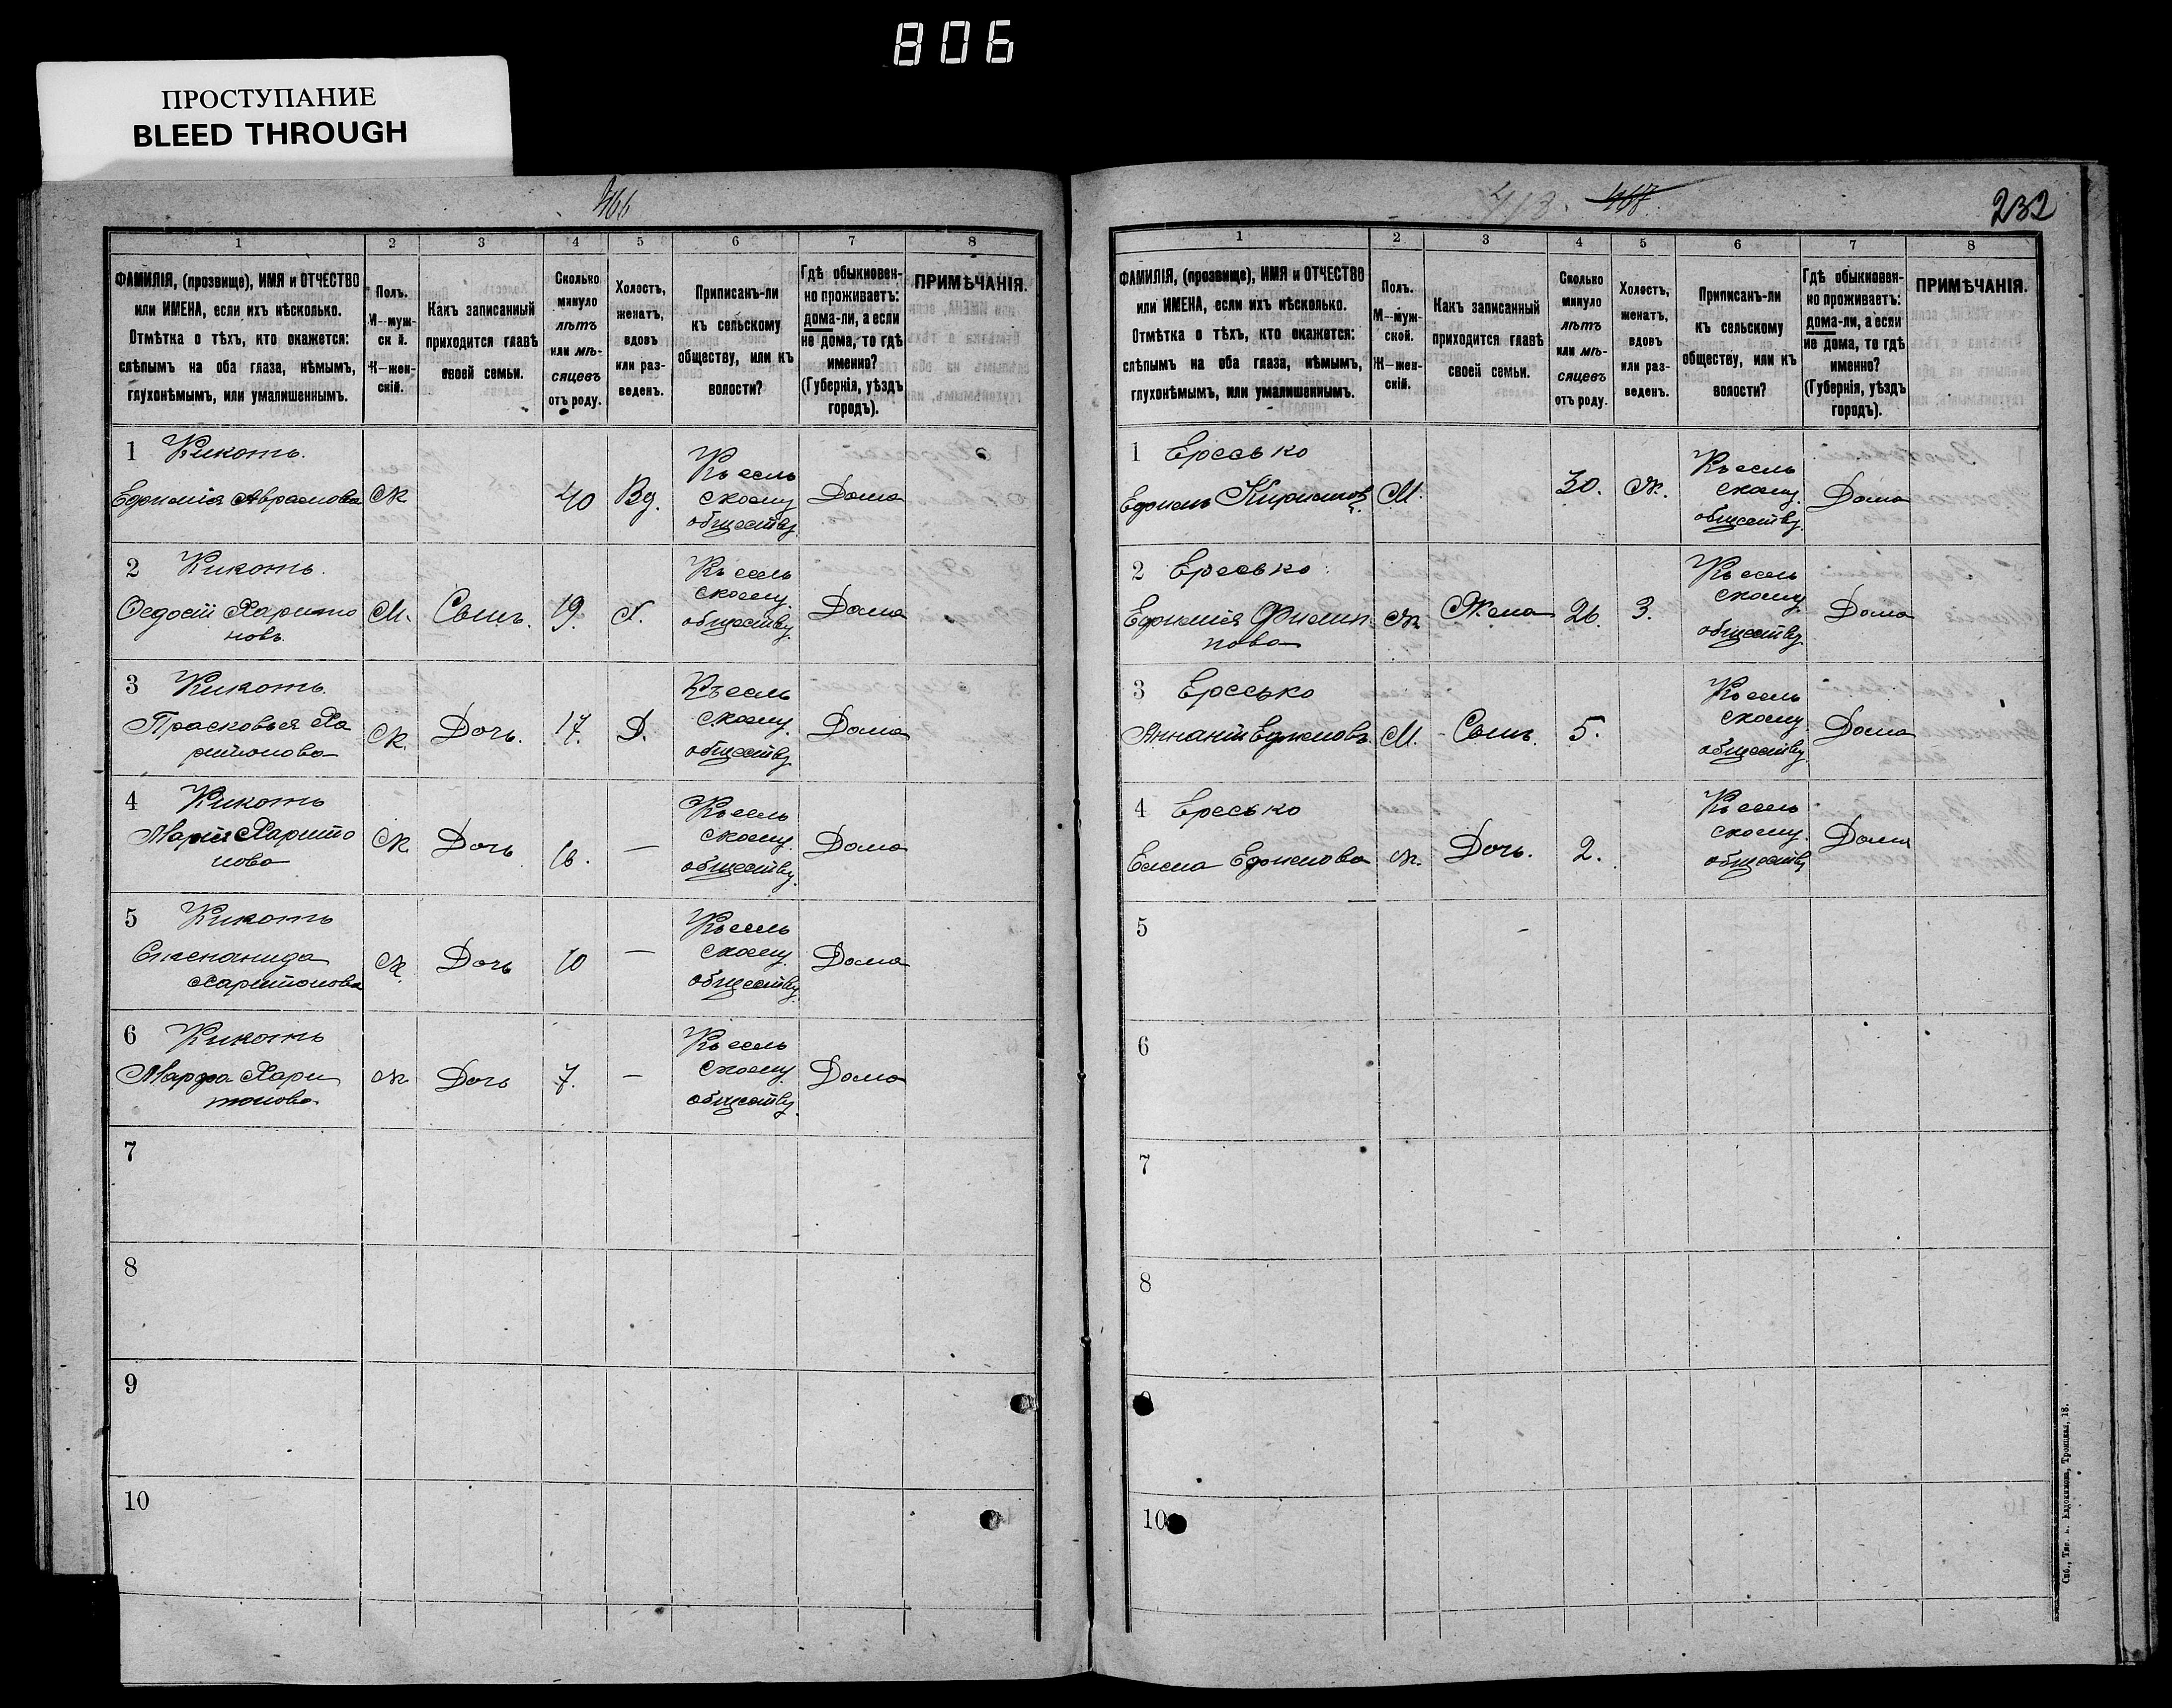 806
ПРОСТУПАНИЕ
BLEED THROUGH
466
1 2 3 4 5 6 7 8
ФАМИЛІЯ, (прозвище), ИМЯ и ОТЧЕСТВО
или ИМЕНА, если ихъ нѣсколько.
Отмѣтка о тѣхъ, кто окажется:
слѣпымъ на оба глаза, нѣмымъ,
глухонѣмымъ, или умалишеннымъ.
Полъ.
М—муж-
ской.
Ж—жен-
скій.
Какъ записанный
приходится главѣ
своей семьи.
Сколько
минуло
лѣтъ
или мѣ-
сяцевъ
отъ роду.
Холостъ,
женатъ,
вдовъ
или раз-
веденъ.
Приписанъ-ли
къ сельскому
обществу, или къ
волости?
Гдѣ обыкновен-
но проживаетъ:
дома-ли, а если
не дома, то гдѣ
именно?
(Губернія, уѣздъ
городъ).
ПРИМѢЧАНІЯ.
1 Кикоть.
Ефимія Аврамова Ж 40 Вд. Къ сель
скому
обществу. Дома
2 Кикоть.
Федосій Харито
новъ М. Сынъ. 19. Х. Къ сель
скому
обществу. Дома
3 Кикоть.
Прасковья Ха
ритонова Ж. Дочь. 17. Д. Къ сель
скому.
обществу Дома
4 Кикоть
Марія Харито
нова Ж Дочь 16. — Къ сель
скому.
обществу. Дома
5 Кикоть
Степанида
Харитонова Ж. Дочь 10 — Къ сель
скому
обществу. Дома
6 Кикоть
Марфа Хари
тонова Ж Дочь 7. — Къ сель
скому
обществу. Дома
7
8
9
10
413. 467. 232
1 2 3 4 5 6 7 8
ФАМИЛІЯ, (прозвище), ИМЯ и ОТЧЕСТВО
или ИМЕНА, если ихъ нѣсколько.
Отмѣтка о тѣхъ, кто окажется:
слѣпымъ на оба глаза, нѣмымъ,
глухонѣмымъ, или умалишеннымъ.
Полъ.
М—муж-
ской.
Ж—жен-
скій.
Какъ записанный
приходится главѣ
своей семьи.
Сколько
минуло
лѣтъ
или мѣ-
сяцевъ
отъ роду.
Холостъ,
женатъ,
вдовъ
или раз-
веденъ.
Приписанъ-ли
къ сельскому
обществу, или къ
волости?
Гдѣ обыкновен-
но проживаетъ:
дома-ли, а если
не дома, то гдѣ
именно?
(Губернія, уѣздъ
городъ).
ПРИМѢЧАНІЯ.
1 Ересько
Ефимъ М. 30. Ж. Къ сель
скому.
обществу. Дома
2 Ересько
Ефимія Филип
пова Ж Жена 26. З. Къ сель
скому.
обществу. Дома
3 Ересько
Ананій Ефимовъ М. Сынъ. 5. Къ сель
скому.
обществу. Дома
4 Ересько
Елена Ефимова Ж. Дочь. 2. Къ сель
скому.
обществу Дома
5
6
7
8
9
10
Спб., Тип. Евдокимова, Троицкая, 18.